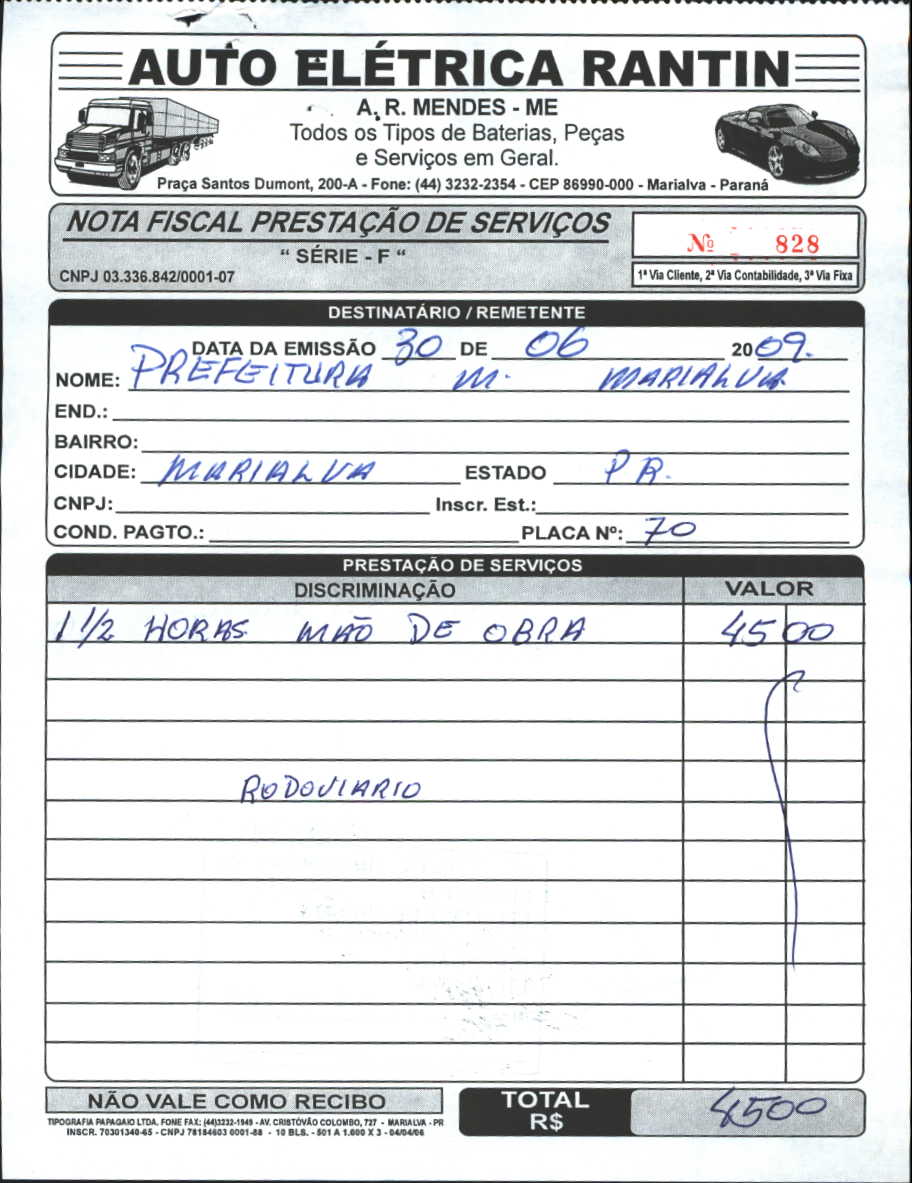 AUTO ELÉTRICA RANTIN
A. R. MENDES - ME
Todos os Tipos de Baterias, Peças
e Serviços em Geral.
Praça Santos Dumont, 200-A - Fone: (44) 3232-2354 - CEP 86990-000 - Marialva - Paraná
NOTA FISCAL PRESTAÇÃO DE SERVIÇOS
Nº 828
“ SÉRIE - F “
CNPJ 03.336.842/0001-07
1ª Via Cliente, 2ª Via Contabilidade, 3ª Via Fixa
DESTINATÁRIO / REMETENTE
DATA DA EMISSÃO 30 DE 06 2009.
NOME: PREFEITURA M. MARIALVA
END.:
BAIRRO:
CIDADE: MARIALVA ESTADO PR.
CNPJ: Inscr. Est.:
COND. PAGTO.: PLACA Nº: 70
PRESTAÇÃO DE SERVIÇOS
DISCRIMINAÇÃO VALOR
1 1/2 HORAS MÃO DE OBRA 45 00
RODOVIARIO
NÃO VALE COMO RECIBO
TOTAL
R$ 4500
TIPOGRAFIA PAPAGAIO LTDA. FONE FAX: (44)3232-1949 - AV. CRISTÓVÃO COLOMBO, 727 - MARIALVA - PR
INSCR. 70301340-65 - CNPJ 78184603 0001-88 - 10 BLS. - 501 A 1.000 X 3 - 04/04/06